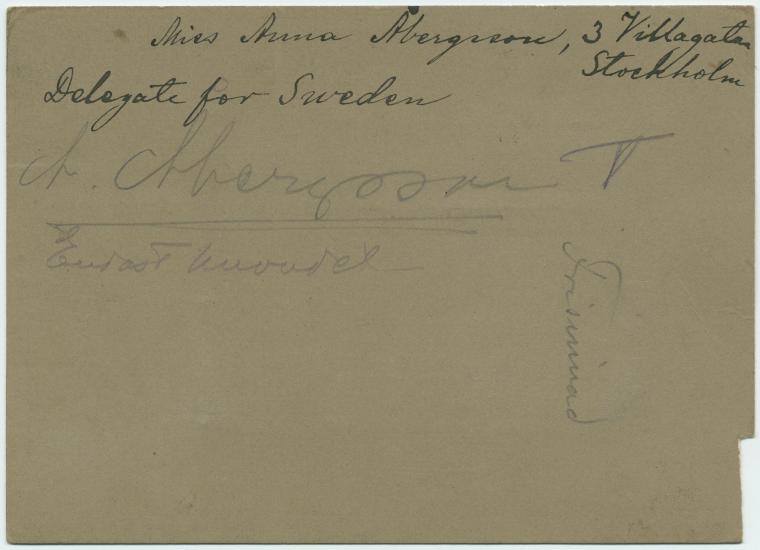 Miss Anna Abergsson, 3 Villagatan
Stockholm
Delegate for Sweden
A. Abergsson
Endast huvudet